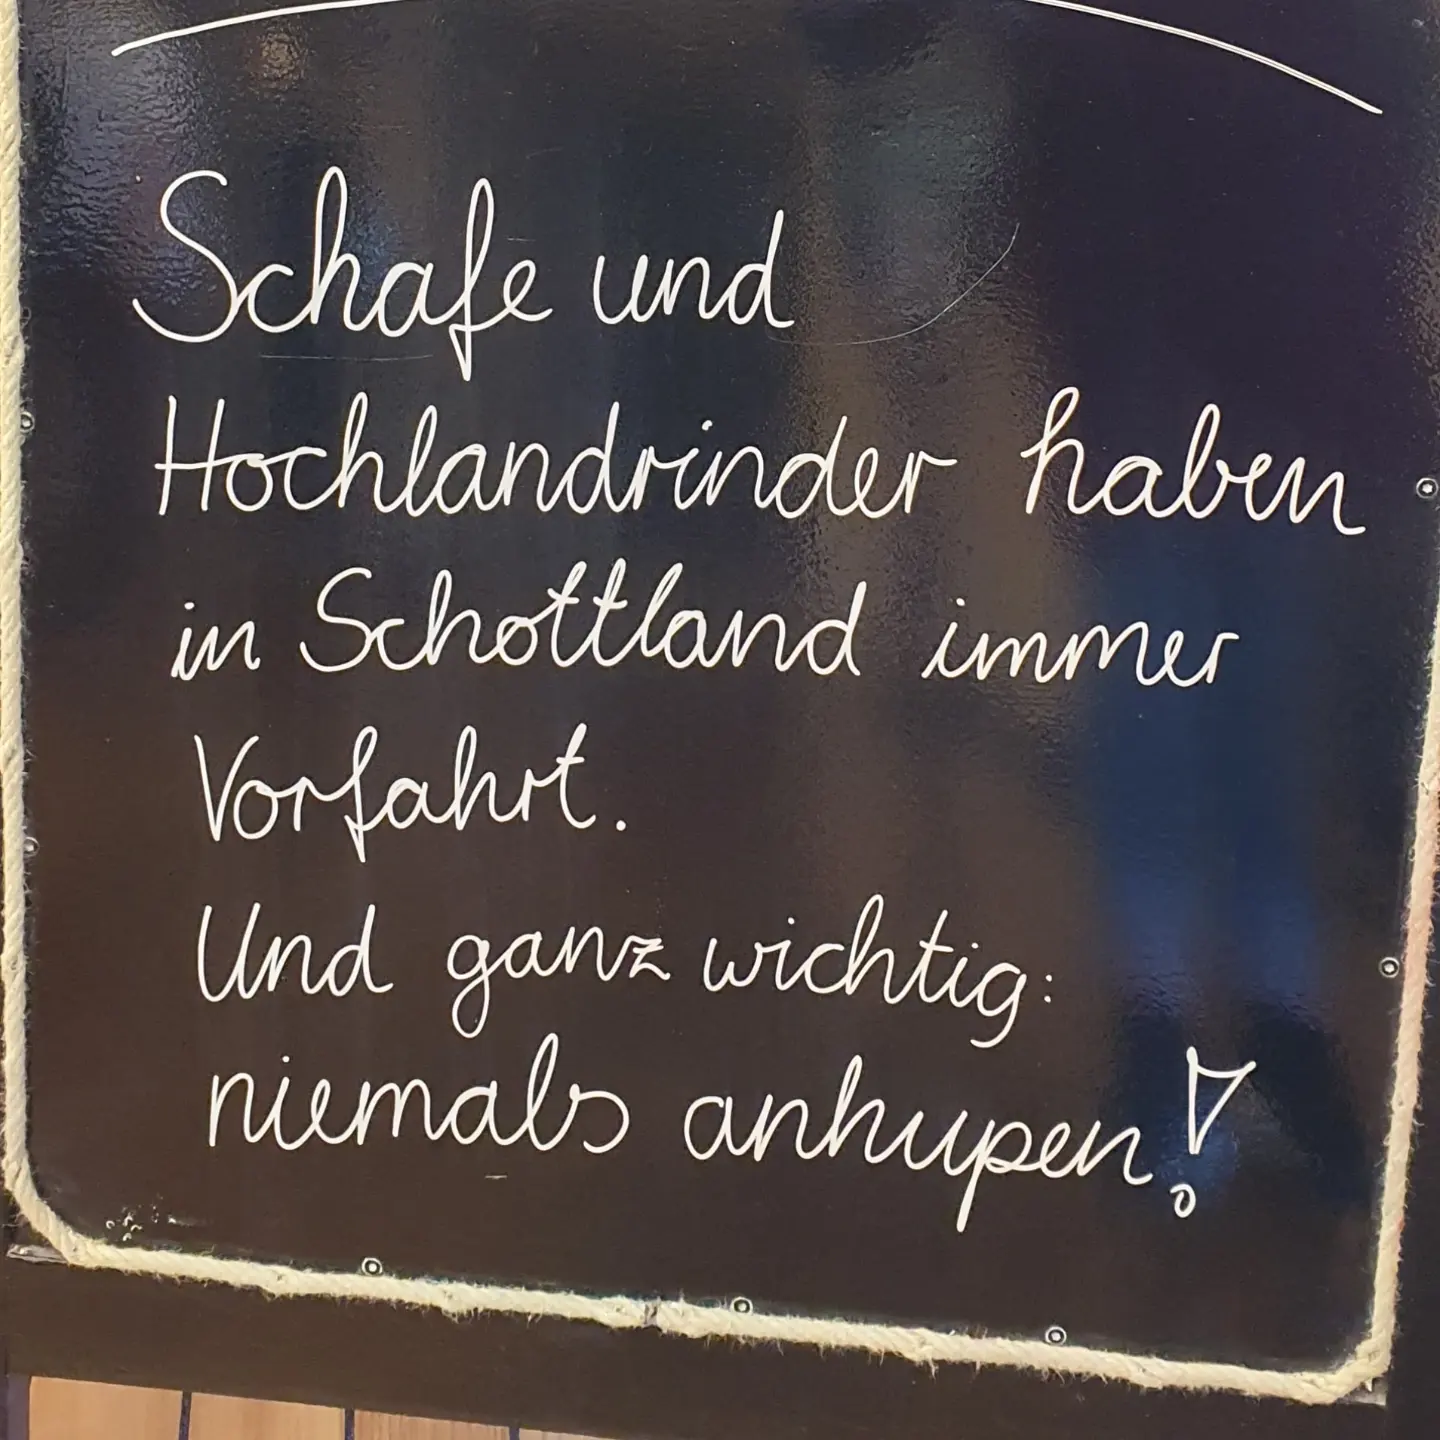 Schafe und
Hochlandrinder haben
in Schottland immer
Vorfahrt.
Und ganz wichtig:
niemals anhupen!